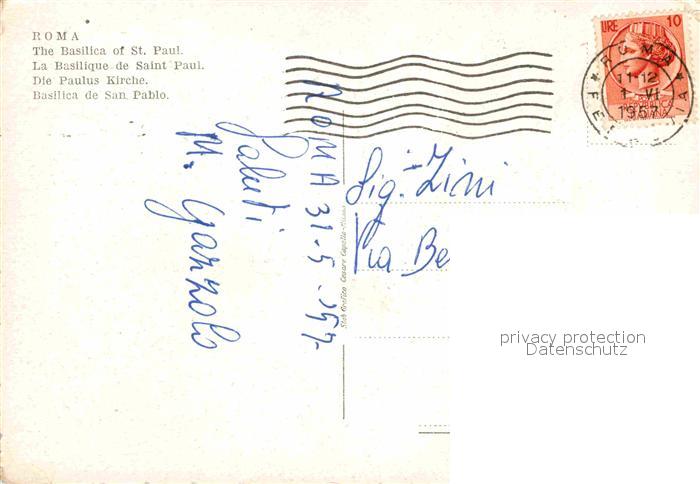 ROMA
The Basilica of St. Paul.
La Basilique de Saint Paul.
Die Paulus Kirche.
Basilica de San Pablo.
LIRE 10
REPUBBLICA
ITALIANA
ROMA
11-12
1 VI
1957
ROMA 31-5-957
Saluti
M. Gazzolo
Stab. Grafico Cesare Capello-Milano
Sig. Zini
Via Be
privacy protection
Datenschutz